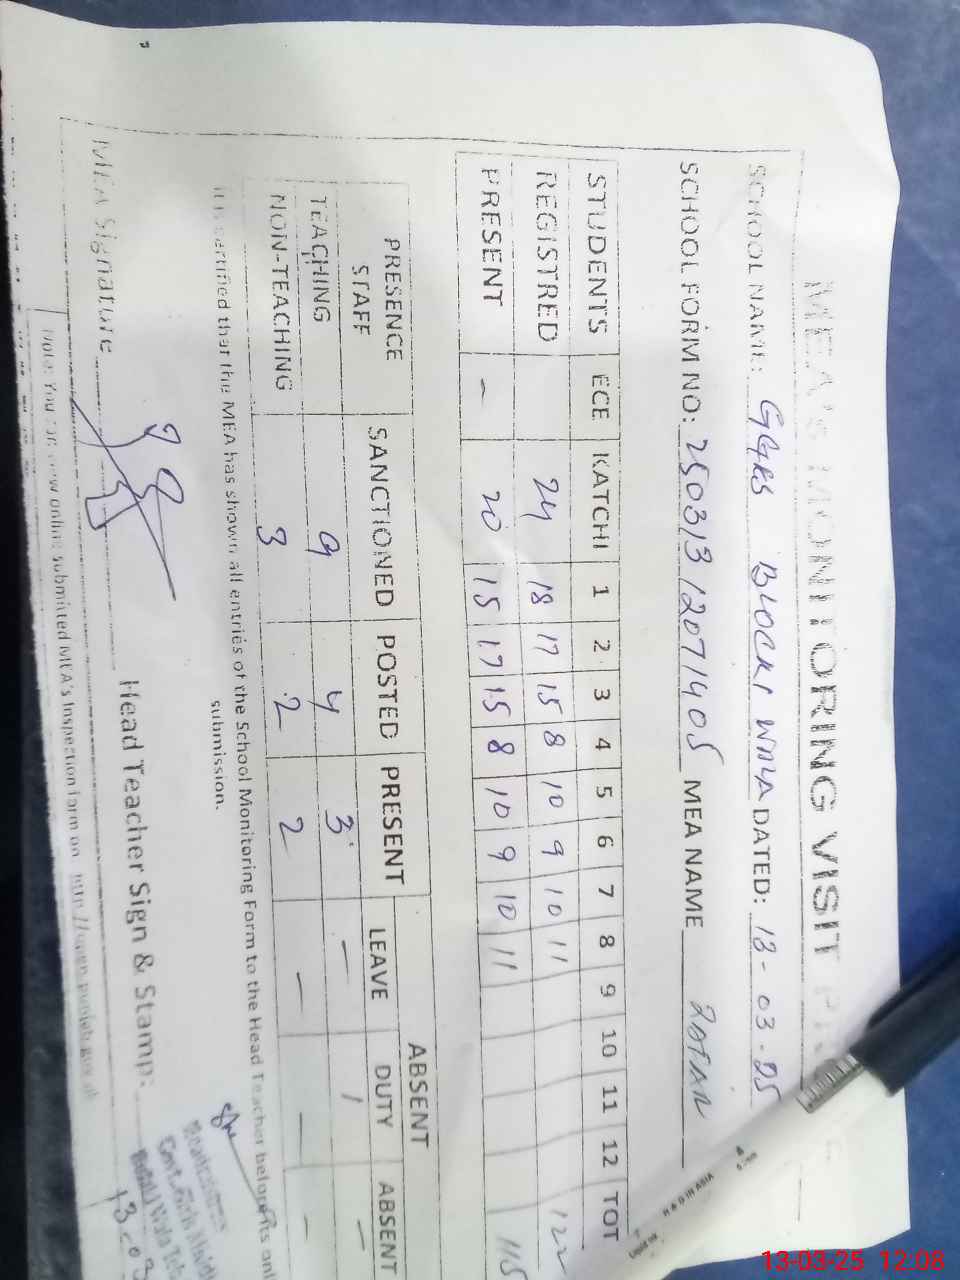 MEA'S MONITORING VISIT
SCHOOL NAME: GGES BLOCK1 WALA DATED: 13-03-25
SCHOOL FORM NO: 25031312071405 MEA NAME
STUDENTS ECE KATCHI 1 2 3 4 5 6 7 8 9 10 11 12 TOT
REGISTRED 24 18 17 15 8 10 9 10 11 122
PRESENT - 20 15 17 15 8 10 9 10 11 115
PRESENCE STAFF SANCTIONED POSTED PRESENT ABSENT
LEAVE DUTY ABSENT
TEACHING 9 4 3 - 1 -
NON-TEACHING 3 2 2 - - -
It is certified that the MEA has shown all entries of the School Monitoring Form to the Head Teacher before its onl
submission.
MEA Signature Head Teacher Sign & Stamp:
Note: You can view online submitted MEA's Inspection form on
MADE IN ASIA
13-03-25 12:08